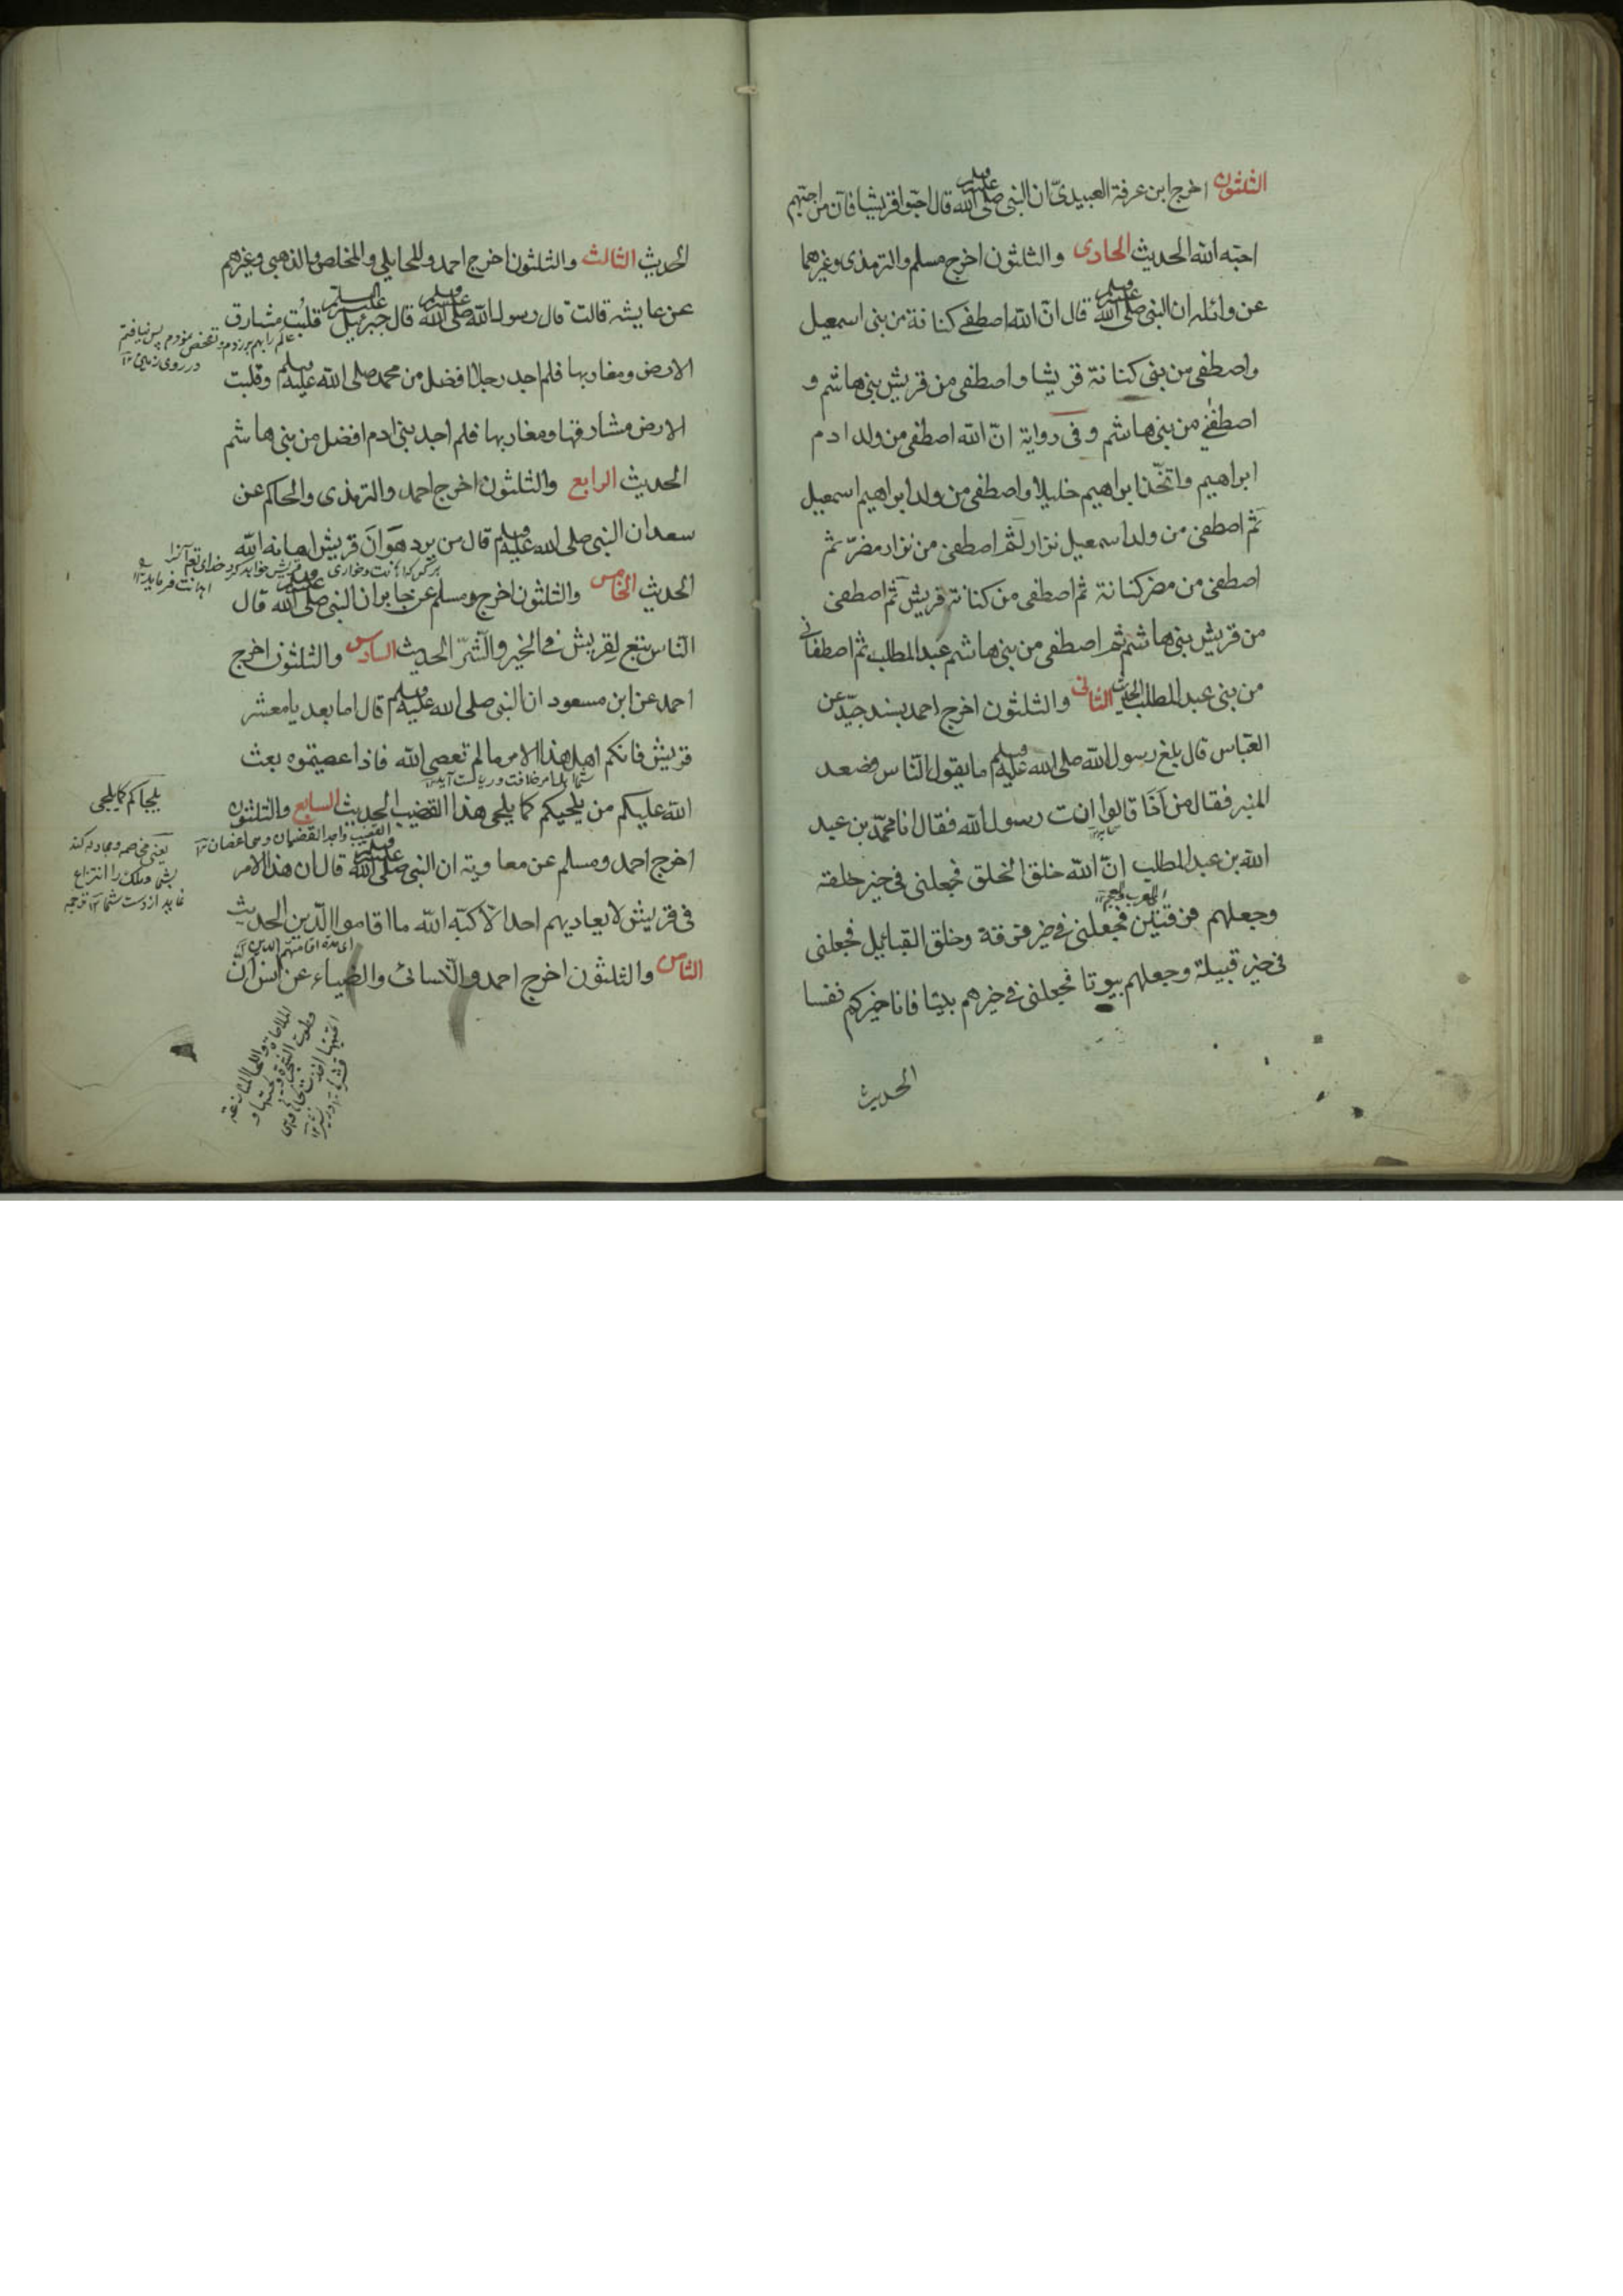 الثلثون اخرج ابن عرفة العبيدىّ ان النبى صلى الله عليه وسلم قال احبّوا قريشا فانّ من احبّهم
احبّه الله الحديث الحادى والثلثون اخرج مسلم والترمذى وغيرهما
عن واثله ان النبى صلى الله عليه وسلم قال انّ الله اصطفى كنانة من بنى اسمعيل
واصطفى من بنى كنانة قريشا واصطفى من قريش بنى هاشم و
اصطفٰنى من بنى هاشم وفى رواية انّ الله اصطفى من ولد ادم
ابراهيم واتخّذ ابراهيم خليلا واصطفى من ولد ابراهيم اسمعيل
ثم اصطفى من ولد اسمعيل نزار ثم اصطفى من نزار مضرّ ثم
اصطفى من مضر كنانة ثم اصطفى من كنانة قريش ثم اصطفى
من قريش بنى هاشم ثم اصطفى من بنى هاشم عبد المطلب ثم اصطفانى
من بنى عبد المطلب الحديث الثانى والثلثون اخرج احمد بسند جيّد عن
العباس قال بلغ رسول الله صلى الله عليه وسلم ما يقول النّاس فصعد
المنبر فقال من اَنَا قالوا انت رسول الله فقال انا محمّد بن عبد
الله بن عبد المطلب انّ الله خلق الخلق فجعلنى فى خير خلقته
العرب والعجم
وجعلهم فرقتين فجعلنى فى خير فرقة وخلق القبائل فجعلنى
فى خير قبيلة وجعلهم بيوتا فجعلنى فى خيرهم بيتا فانا خيركم نفسا
الحديث
الحديث الثالث والثلثون اخرج احمد والمحاملى والمخلص والذهبى وغيرهم
عن عايشه قالت قال رسول الله صلى الله عليه وسلم قال جبرئيل عليه السلم قلبت مشارق
الارض ومغاربها فلم اجد رجلا افضل من محمد صلى الله عليه وسلم وقلبت
الارض مشارقها ومغاربها فلم اجد بنى ادم افضل من بنى هاشم
الحديث الرابع والثلثون اخرج احمد والترمذى والحاكم عن
سعد ان النبى صلى الله عليه وسلم قال من يرد هَوَانَ قريش اهانه الله
هركس كه اهانت وخوارى قريش خواهد كرد خداى تع آنرا
اهانت فرمايد ١٢
الحديث الخامس والثلثون اخرج ومسلم عن جابر ان النبى صلى الله عليه وسلم قال
النّاس تبع لقريش فى الخير والشّر الحديث السادس والثلثون اخرج
احمد عن ابن مسعود ان النبى صلى الله عليه وسلم قال اما بعد يا معشر
قريش فانكم اهل هذا الامر ما لم تعصى الله فاذا عصيتموه بعث
الله عليكم من يلحيكم كما يلحى هذا القضيب الحديث السابع والثلثون
القضيب واحد القضبان وهى اغصان ١٢
اخرج احمد ومسلم عن معاوية ان النبى صلى الله عليه وسلم قال ان هذا الامر
فى قريش لا يعاديهم احد الّا كبّه الله ما اقاموا الدّين الحديث
اى مدة اقامتهم الدين ١٢
الثامن والثلثون اخرج احمد والنّسائى والضياء عن انس انّ
عالم را بهم برزدم وتفحص نمودم پس نيافتم
در روى زمين ١٢
يلحاكم كما يلحى
يعنى مخاصمه ومجادله كند
بشما وملك را انتزاع
نمايد از دست شما ١٢ ترجمه